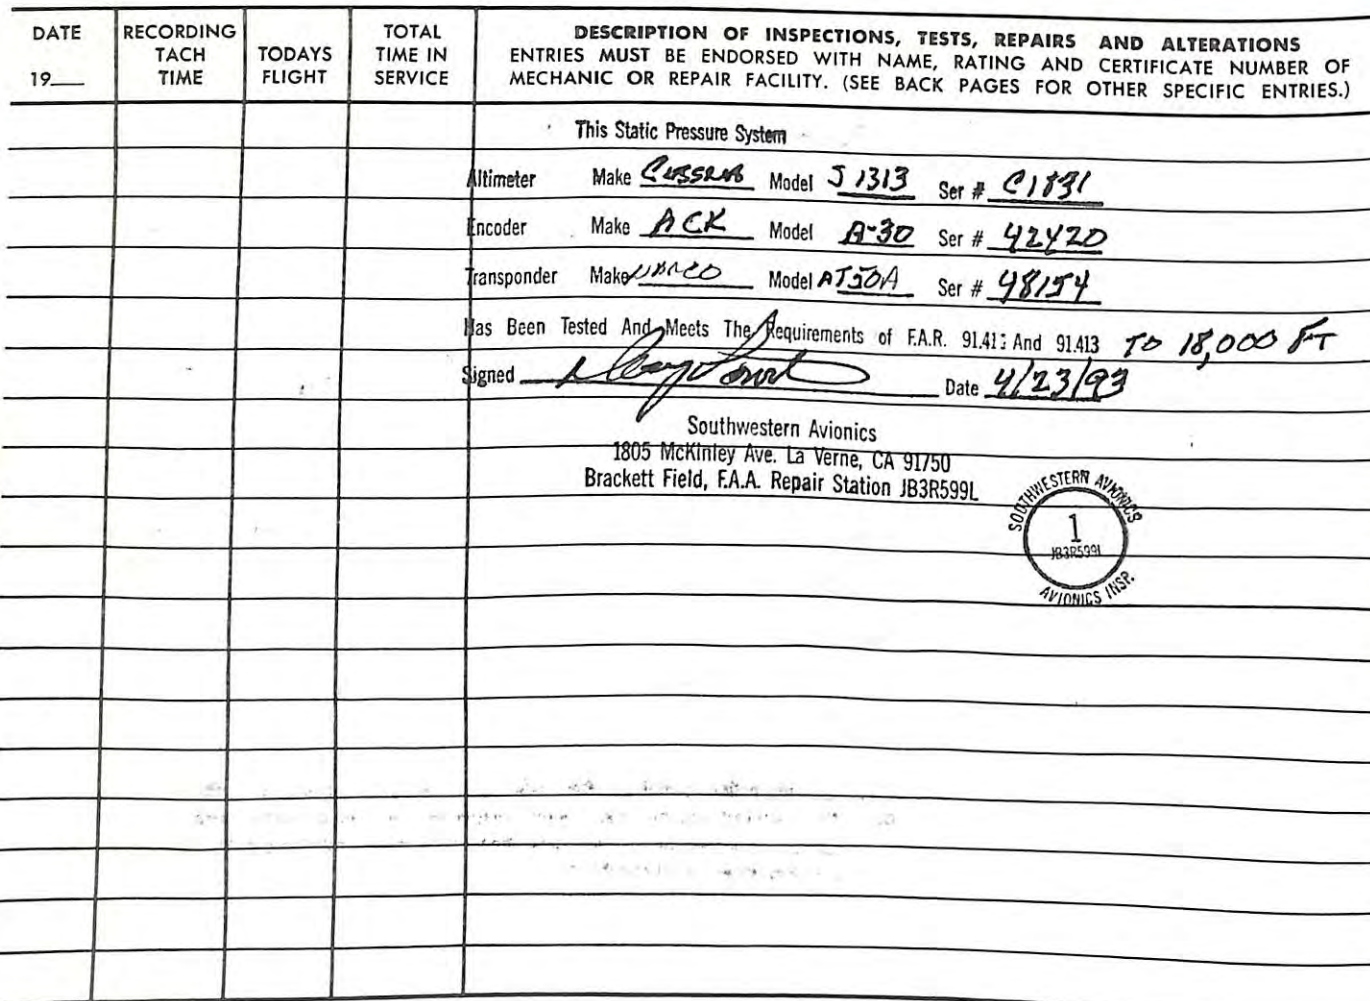 DATE
19__
RECORDING
TACH
TIME
TODAYS
FLIGHT
TOTAL
TIME IN
SERVICE
DESCRIPTION OF INSPECTIONS, TESTS, REPAIRS AND ALTERATIONS
ENTRIES MUST BE ENDORSED WITH NAME, RATING AND CERTIFICATE NUMBER OF
MECHANIC OR REPAIR FACILITY. (SEE BACK PAGES FOR OTHER SPECIFIC ENTRIES.)
This Static Pressure System
Altimeter Make Cessna Model J1313 Ser # C1831
Encoder Make ACK Model A-30 Ser # 42420
Transponder Make Model AT50A Ser # 48154
Has Been Tested And Meets The Requirements of F.A.R. 91.41 And 91.413 TO 18,000 FT
Signed Date 4/23/93
Southwestern Avionics
1805 McKinley Ave. La Verne, CA 91750
Brackett Field, F.A.A. Repair Station JB3R599L
SOUTHWESTERN AVIONICS
1
JB3R599L
AVIONICS INSP.